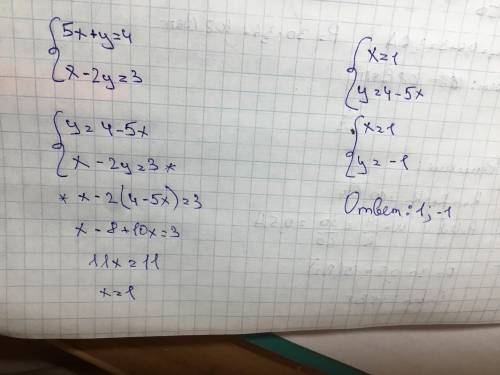 5x+y=4
x-2y=3
y=4-5x
x-2y=3*
* x-2(4-5x)=3
x-8+10x=3
11x=11
x=1
x=1
y=4-5x
x=1
y=-1
Ответ: 1; -1